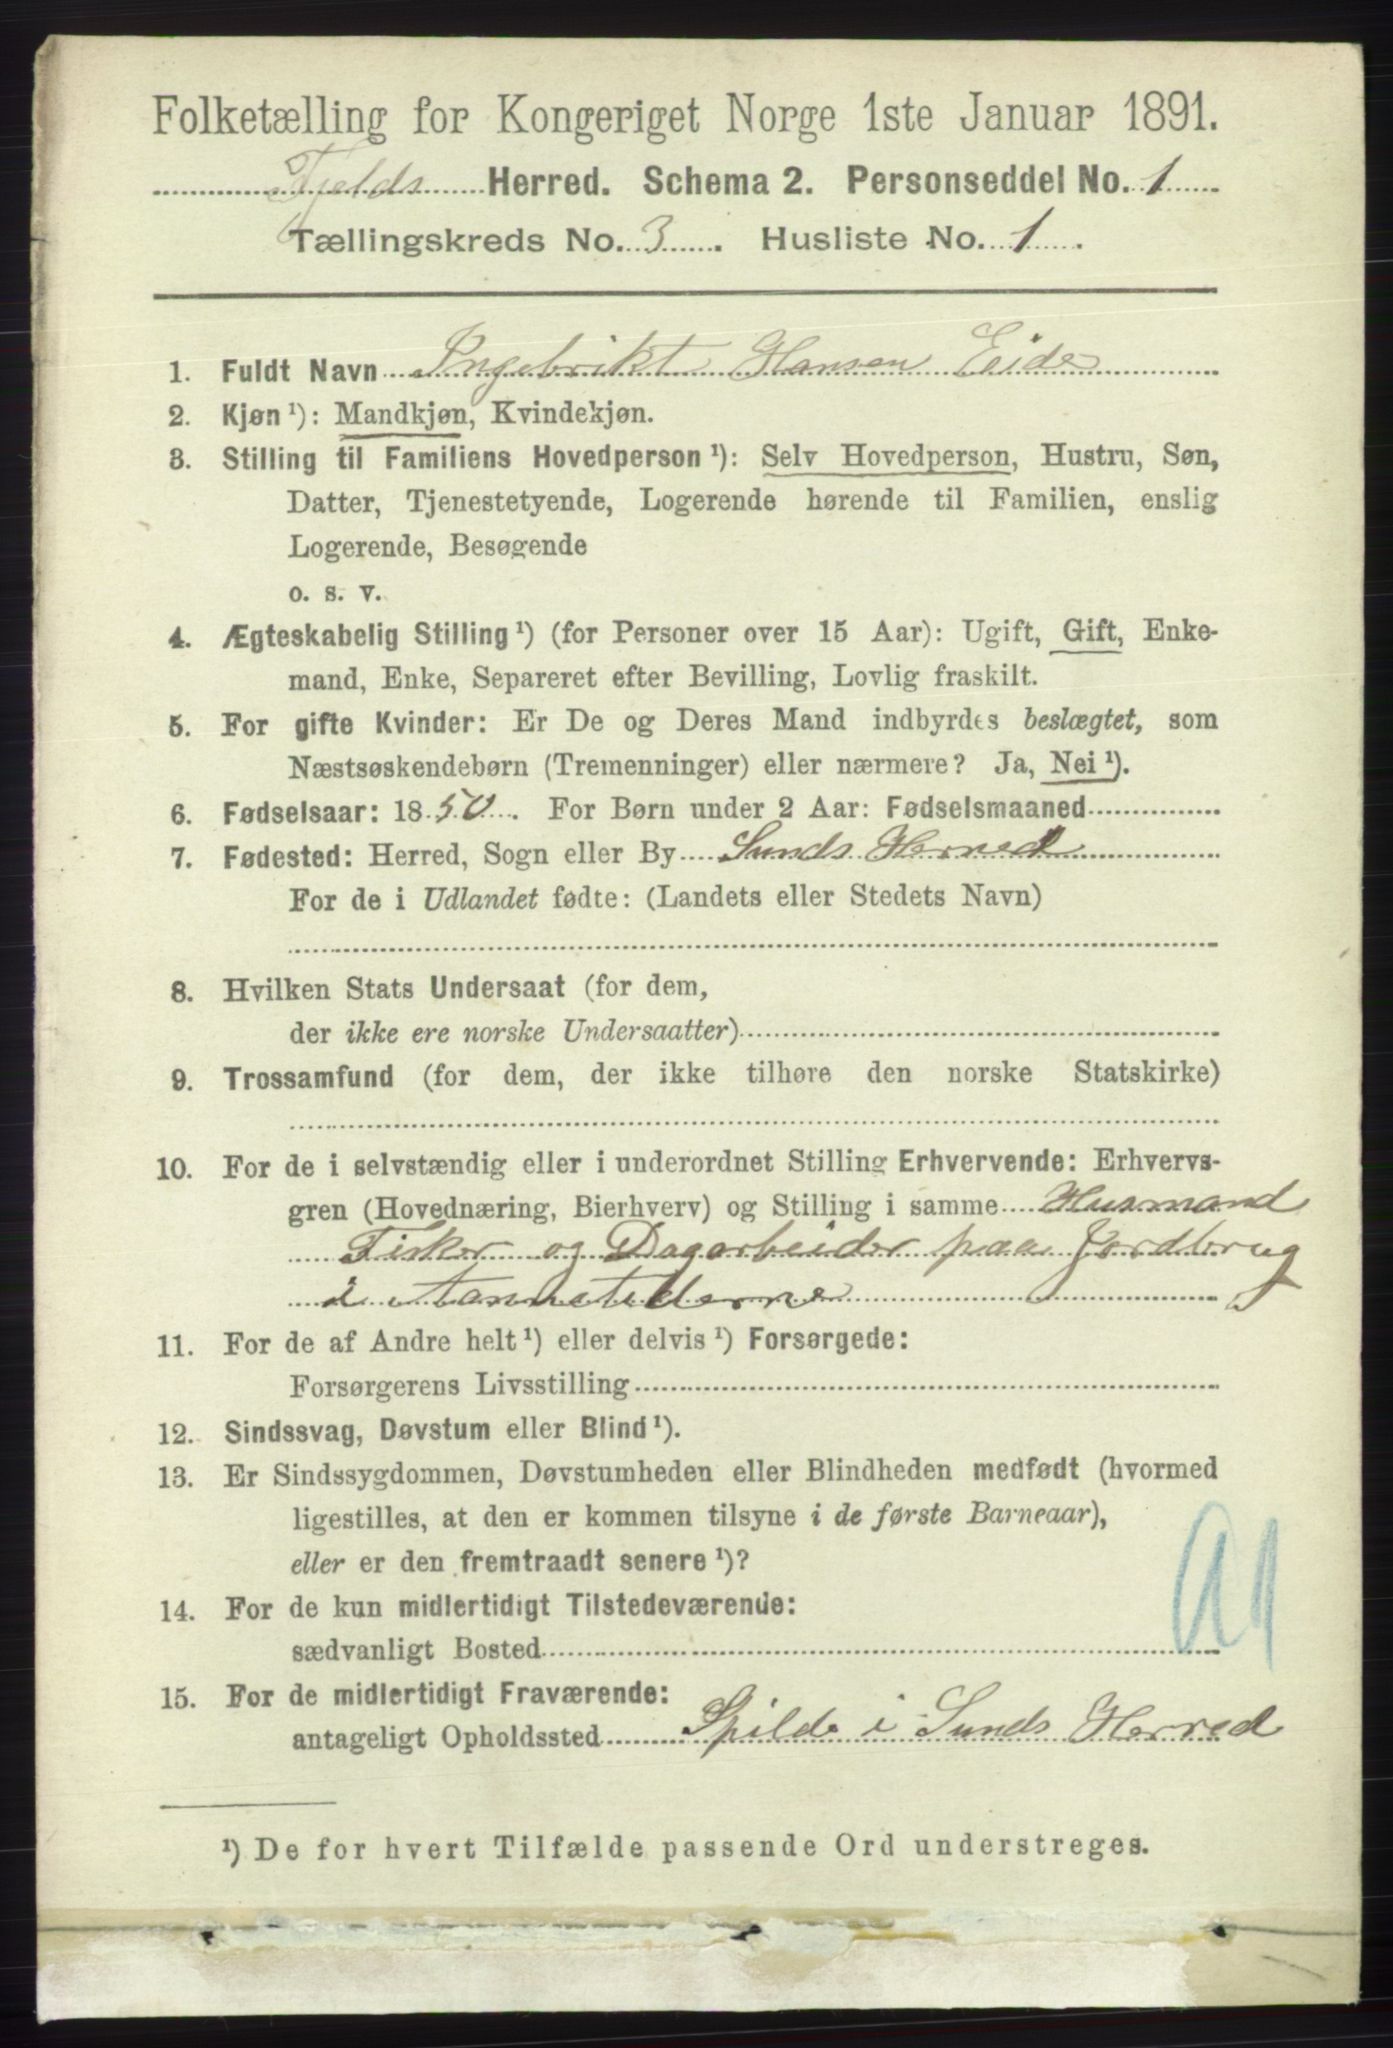 Folketælling for Kongeriget Norge 1ste Januar 1891.
Fjelds Herred. Schema 2. Personseddel No. 1
Tællingskreds No. 3. Husliste No. 1.
1. Fuldt Navn Ingebrikt Hansen Eide
2. Kjøn ¹): Mandkjøn, Kvindekjøn.
3. Stilling til Familiens Hovedperson ¹): Selv Hovedperson, Hustru, Søn,
Datter, Tjenestetyende, Logerende hørende til Familien, enslig
Logerende, Besøgende
o. s. v.
4. Ægteskabelig Stilling ¹) (for Personer over 15 Aar): Ugift, Gift, Enke-
mand, Enke, Separeret efter Bevilling, Lovlig fraskilt.
5. For gifte Kvinder: Er De og Deres Mand indbyrdes beslægtet, som
Næstsøskendebørn (Tremenninger) eller nærmere? Ja, Nei ¹).
6. Fødselsaar: 1850. For Børn under 2 Aar: Fødselsmaaned
7. Fødested: Herred, Sogn eller By Sunds Herred
For de i Udlandet fødte: (Landets eller Stedets Navn)
8. Hvilken Stats Undersaat (for dem,
der ikke ere norske Undersaatter)
9. Trossamfund (for dem, der ikke tilhøre den norske Statskirke)
10. For de i selvstændig eller i underordnet Stilling Erhvervende: Erhvervs-
gren (Hovednæring, Bierhverv) og Stilling i samme Husmand
Fisker og Dagarbeider paa Jordbrug
i
11. For de af Andre helt ¹) eller delvis ¹) Forsørgede:
Forsørgerens Livsstilling
12. Sindssvag, Døvstum eller Blind ¹).
13. Er Sindssygdommen, Døvstumheden eller Blindheden medfødt (hvormed
ligestilles, at den er kommen tilsyne i de første Barneaar),
eller er den fremtraadt senere ¹)?
14. For de kun midlertidigt Tilstedeværende:
sædvanligt Bosted
15. For de midlertidigt Fraværende:
antageligt Opholdssted Spilde i Sunds Herred
¹) De for hvert Tilfælde passende Ord understreges.